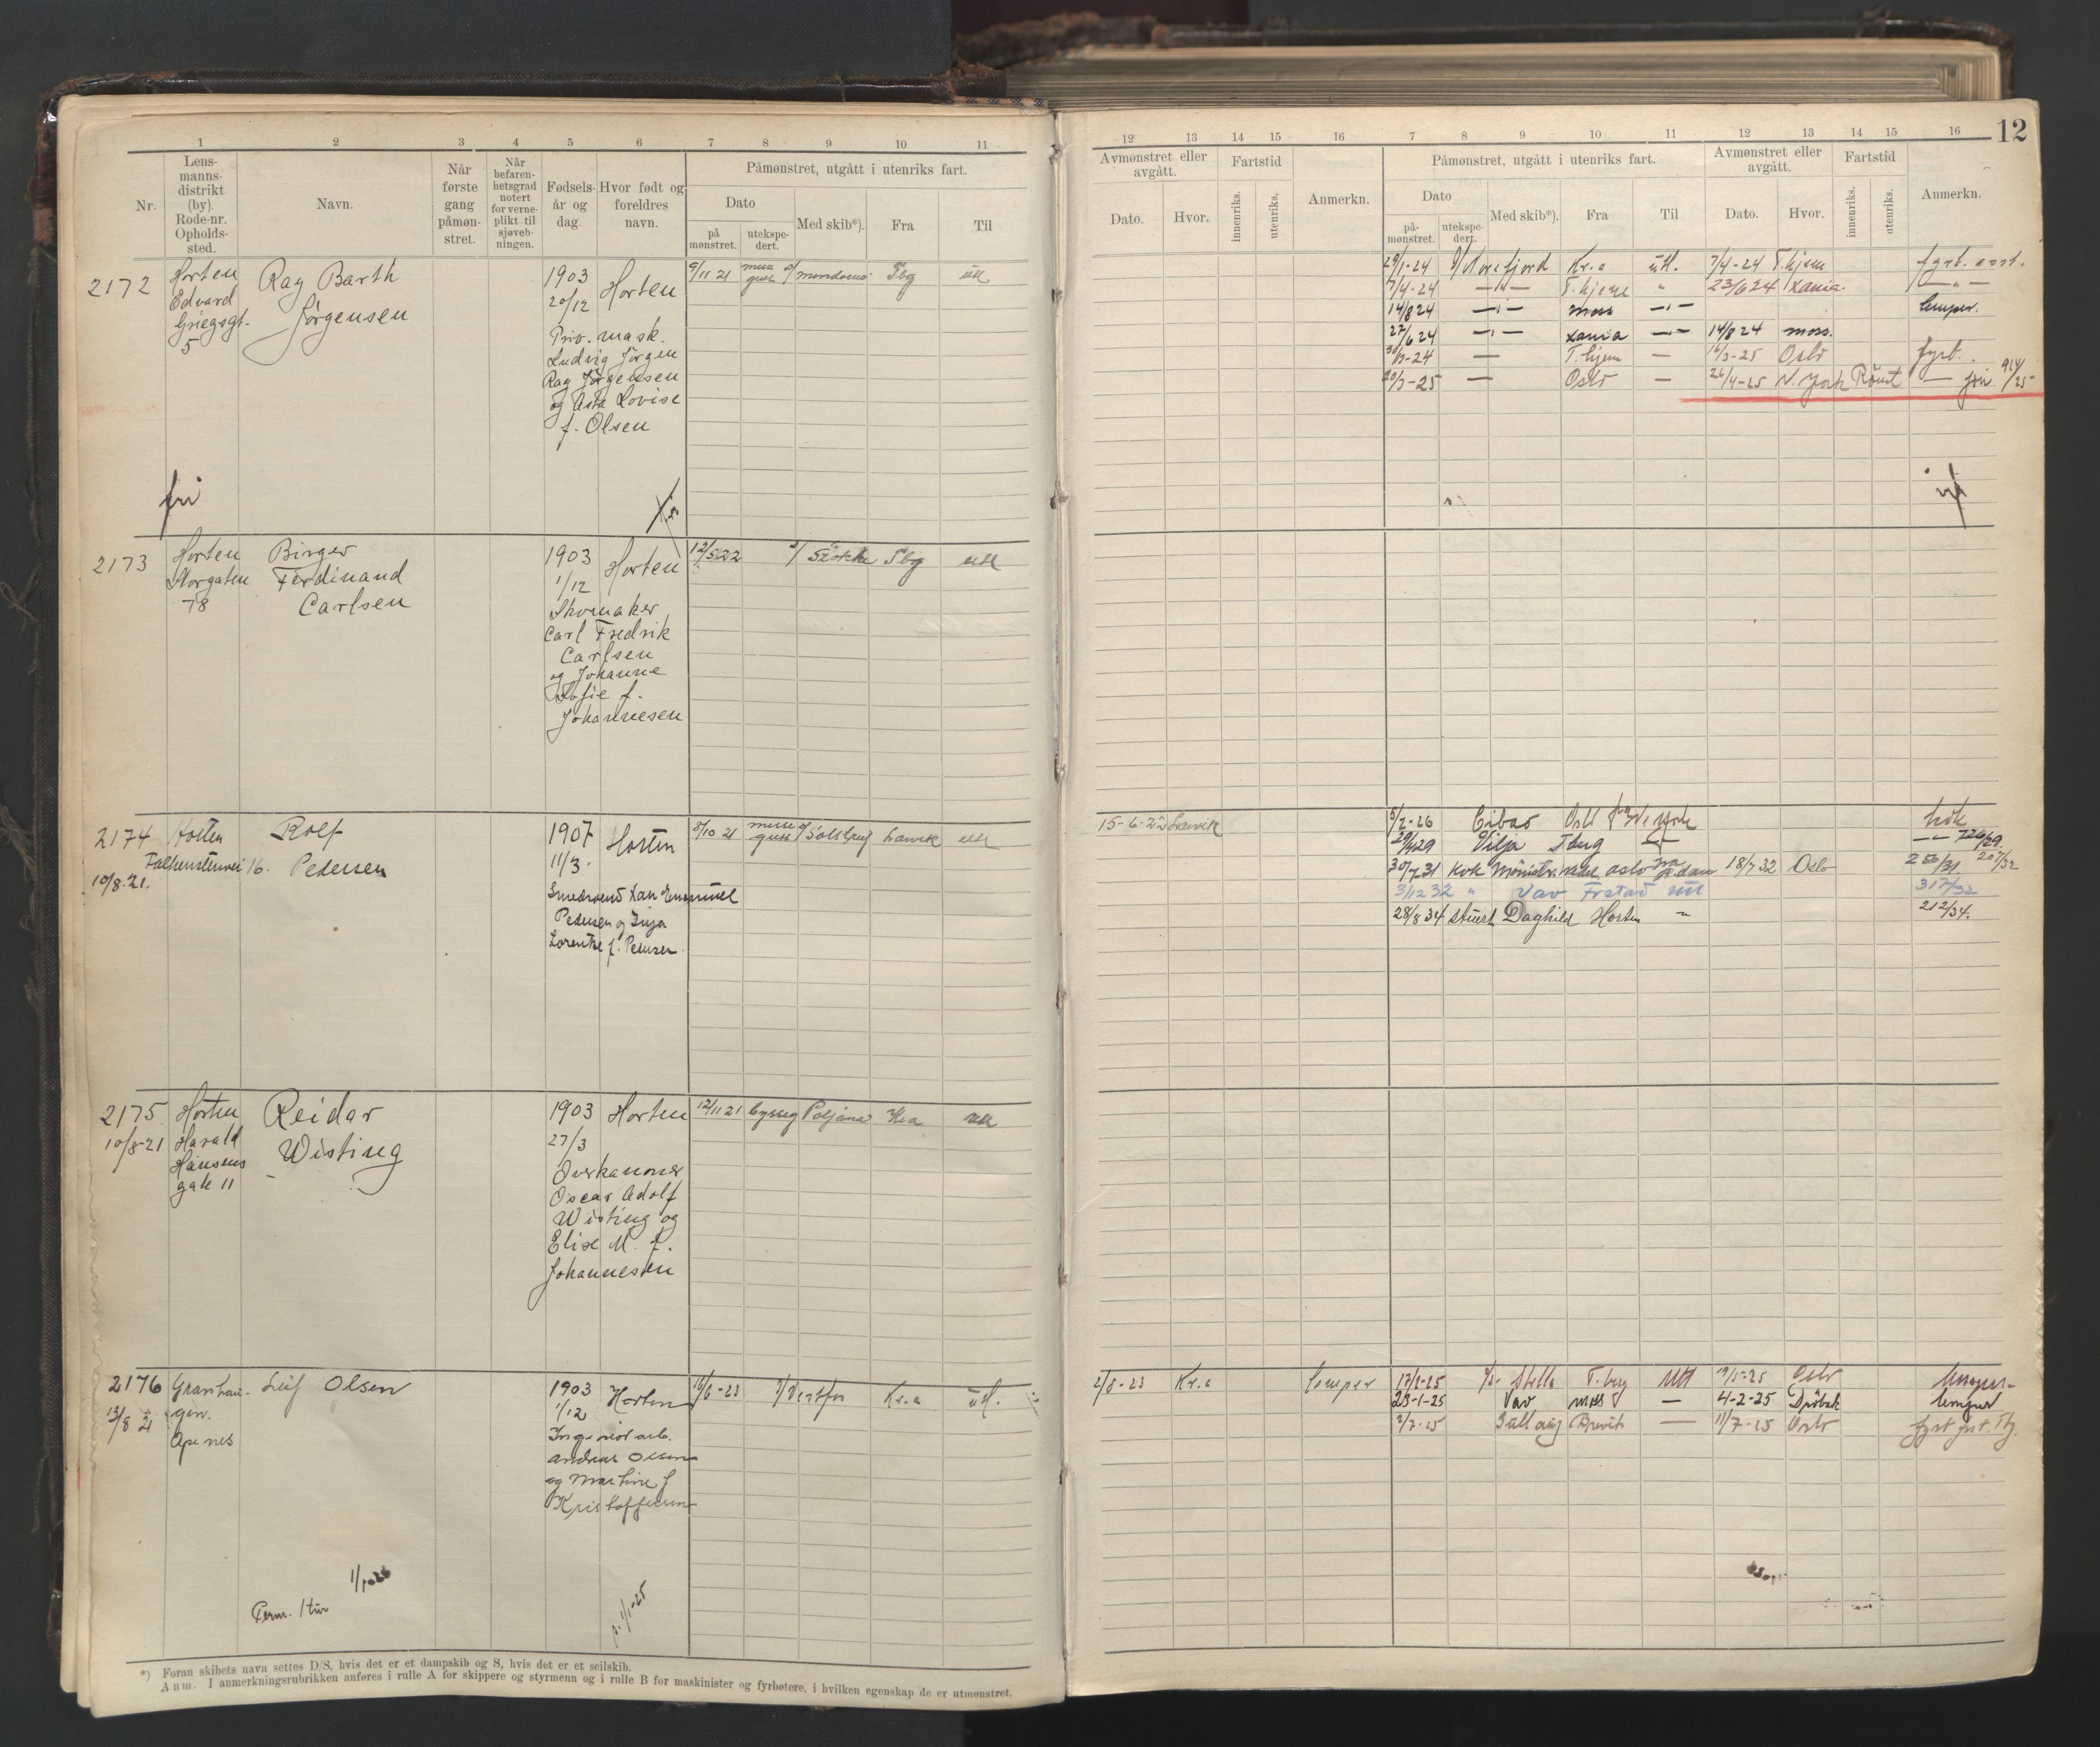 12
1 2 3 4 5 6 7 8 9 10 11
Nr.
Lens-
manns-
distrikt
(by).
Rode-nr.
Opholds-
sted.
Navn.
Når
første
gang
påmøn-
stret.
Når
befaren-
hetsgrad
notert
for verne-
plikt til
sjøveb-
ningen.
Fødsels-
år og
dag.
Hvor født og
foreldres
navn.
Påmønstret, utgått i utenriks fart.
Dato
på
mønstret.
utekspe-
dert.
Med skib*).
Fra
Til
2172
Horten
Edvard
Griegsgt.
5
Ray Barth
Jörgensen
1903
20/12
Horten
Priv. mask.
Ludvig Jörgen
Ray Jörgensen
og Asta Lovise
f. Olsen
9/11 21
Tbg
utl
fri
2173
Horten
Storgaten
78
Birger
Ferdinand
Carlsen
1903
1/12
Horten
Skomaker
Carl Fredrik
Carlsen
og Johanne
Sofie f.
Johannesen
12/5 22
Tbg
utl
2174
10/8-21.
Horten
Falkenstenvei 16.
Rolf
Pedersen
1907
11/3.
Horten
Pedersen og Inga
Lorentse f. Pedersen
8/10 21
Larvik
utl
2175
10/8-21
Horten
Harald
Hansens
gate 11
Reidar
Wisting
1903
27/3
Horten
Overkanoner
Oscar Adolf
Wisting og
Elise M. f.
Johannesen
12/11 21
bysseg
Poljana
Kra
utl
2176
13/8 21
Granhau-
gen.
Apenes
Leif Olsen
1903
1/12
Horten
Andreas Olsen
og Martine f
Kristoffersen
Vestfos
Kr.a
utl.
Perm. 1 tur
1/1-25
*) Foran skibets navn settes D/S, hvis det er et dampskib og S, hvis det er et seilskib.
Anm. I anmerkningsrubrikken anføres i rulle A for skippere og styrmenn og i rulle B for maskinister og fyrbøtere, i hvilken egenskap de er utmønstret.
12 13 14 15 16 7 8 9 10 11 12 13 14 15 16
Avmønstret eller
avgått.
Dato.
Hvor.
Fartstid
innenriks.
utenriks.
Anmerkn.
Påmønstret, utgått i utenriks fart.
Dato
på-
mønstret.
utekspe-
dert.
Med skib*).
Fra
Til
Avmønstret eller
avgått.
Dato.
Hvor.
Fartstid
innenriks.
utenriks.
Anmerkn.
29/1-24 Norefjord Kr.a utl. 7/4-24 T.hjem fyrb. asst.
7/4-24 —"— T.hjem " 23/6 24 Xania —"—
14/8 24 —"— moss —"— lemper.
27/6 24 —"— Xania —"— 14/8 24 moss.
T.hjem — 16/3-25 Oslo fyrb.
20/3-25 — Oslo — 26/4-25 N. york
15-6-22 Larvik
5/2-26 Cibao Oslo
Vilja Tbrg
30/7 31 kok Oslo 18/7 32 Oslo 20 7/32
3/12 32 " Vav Frstad utl 317/32
28/8 34 stuert Daghild Horten " 212/34.
2/8-23 Kr.a lemper
Stella T.berg utl 19/5-25 Oslo lemper
23-1-25 Vav moss — 4-2-25 Dröbak lemper
Brevik — 11/7-25 Oslo